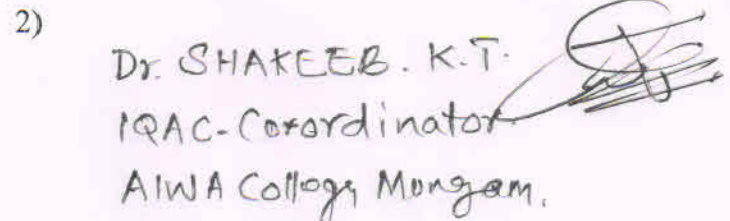 2)
Dr. SHAKEEB. K.T.
IQAC-Coordinator
AIWA College, Mongam.